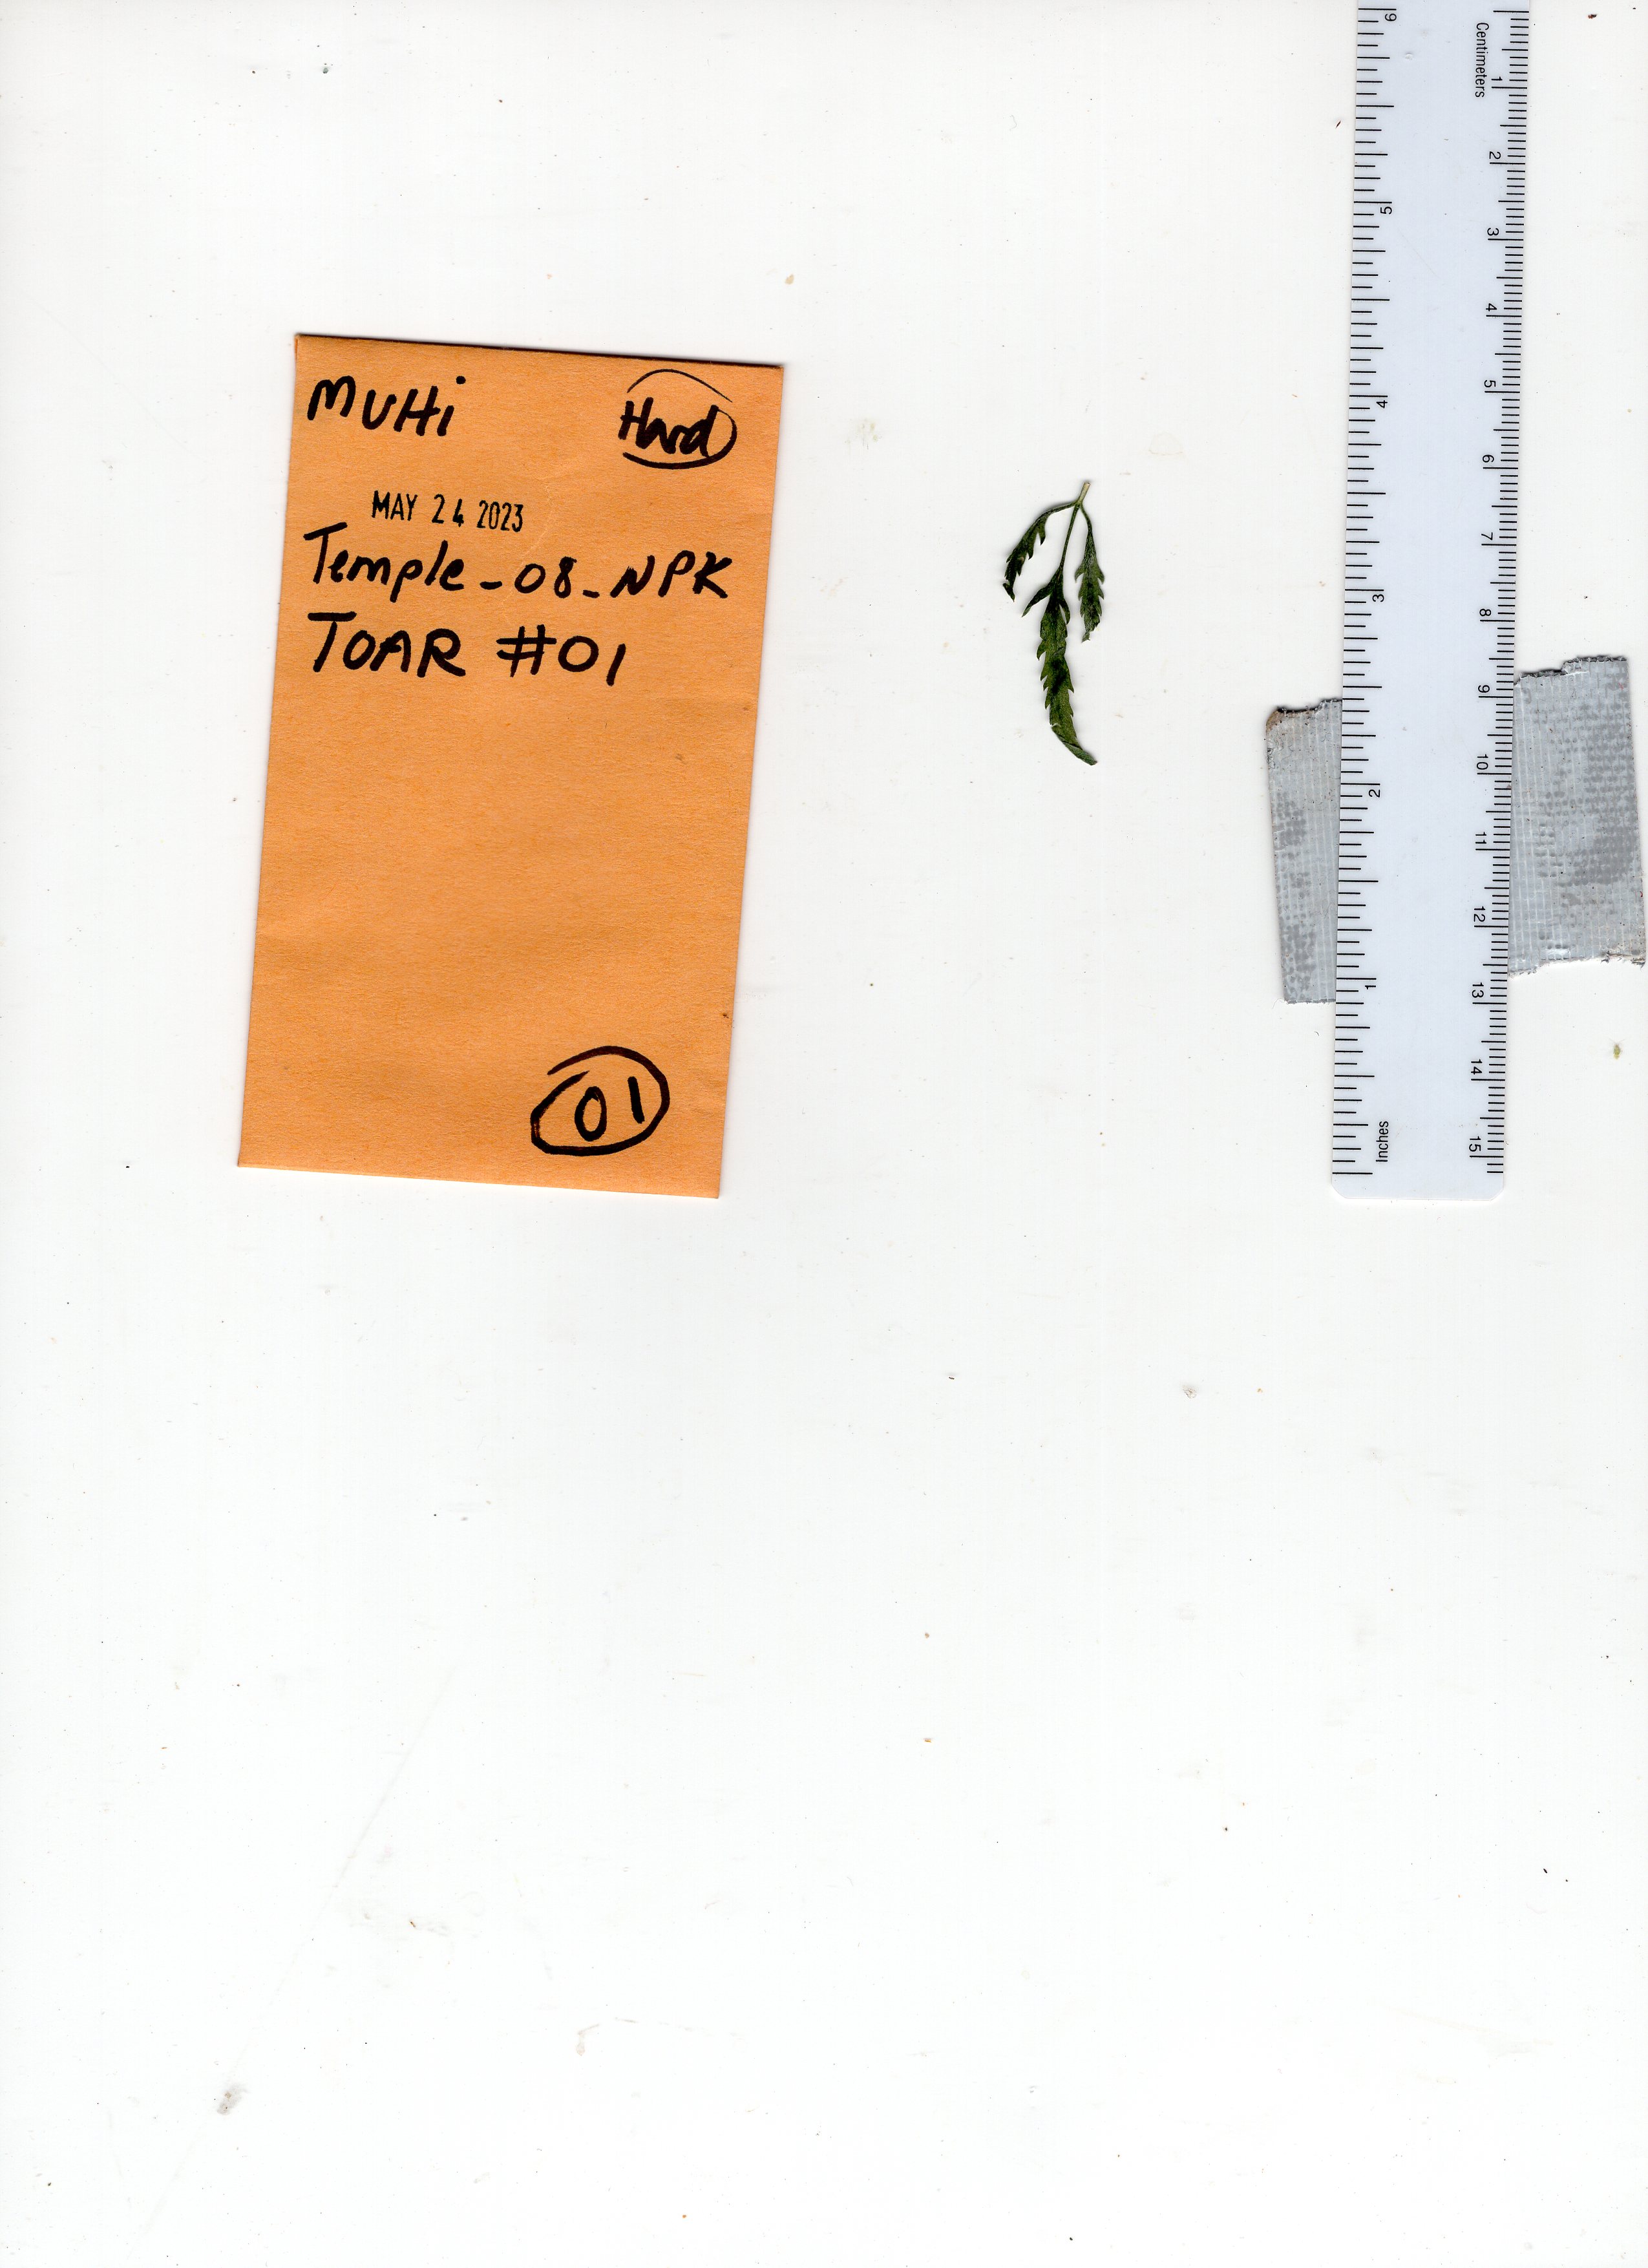 MUHi
Hard
MAY 24 2023
Temple-08-NPK
TOAR #01
01
Centimeters
1
2
3
4
5
6
7
8
9
10
11
12
13
14
15
6
5
4
3
2
1
Inches